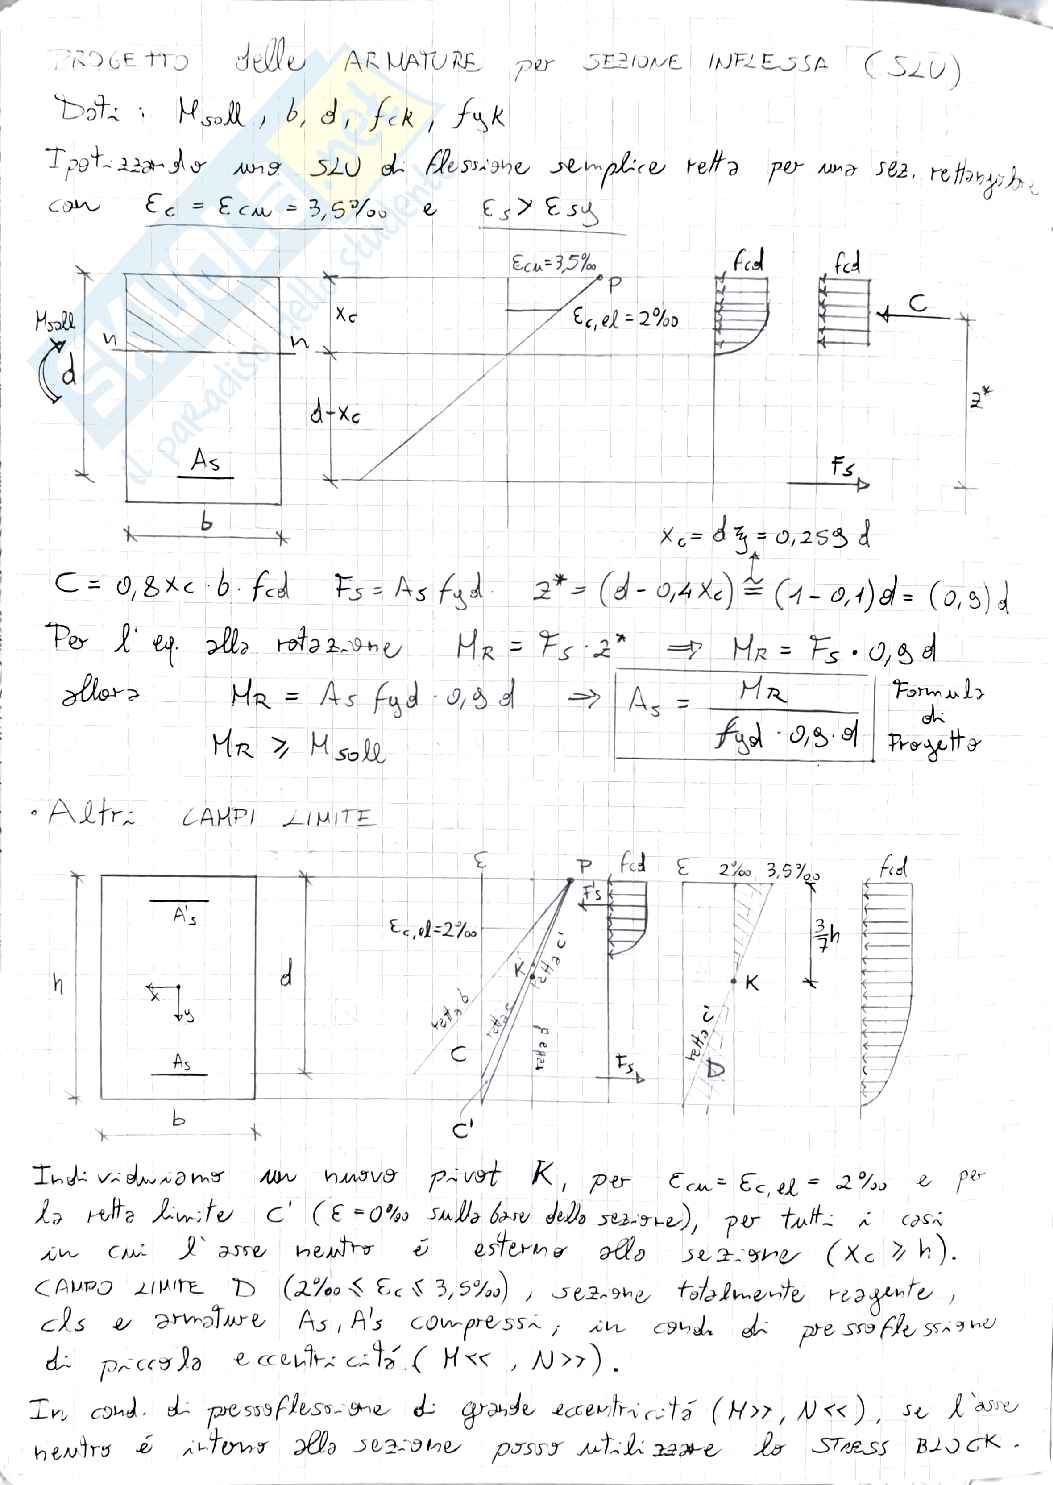 PROGETTO delle ARMATURE per SEZIONE INFLESSA (SLU)
Dati : Msoll, b, d, fck, fyk
Ipotizzando uno SLU di flessione semplice retta per una sez. rettangolare
con εc = εcu = 3,5‰ e εs > εsy
εcu=3,5‰
P
fcd
fcd
Msoll
n
n
xc
εc,el = 2‰
C
d
d-xc
z*
As
Fs
b
xc = d ξ = 0,259 d
C = 0,8xc · b · fcd Fs = As fyd. z* = (d - 0,4xc) ≅ (1 - 0,1)d = (0,9)d
Per l'eq. alla rotazione MR = Fs · z* ⇒ MR = Fs · 0,9 d
allora MR = As fyd · 0,9 d ⇒ As = MR / fyd · 0,9 · d Formula di Progetto
MR ⩾ Msoll
· Altri CAMPI LIMITE
ε
P
fcd
ε
2‰
3,5‰
fcd
A's
F's
εc,el=2‰
3/7 h
h
d
K
retta c'
K
x
y
retta b
retta s
retta f
retta c'
As
C
Fs
D
b
C'
Individuiamo un nuovo pivot K, per εcu = εc,el = 2‰ e per
la retta limite C' (ε=0‰ sulla base della sezione), per tutti i casi
in cui l'asse neutro é esterno alla sezione (xc ⩾ h).
CAMPO LIMITE D (2‰ ⩽ εc ⩽ 3,5‰), sezione totalmente reagente,
cls e armature As, A's compressi, in cond. di pressoflessione
di piccola eccentricitá (M<< , N>>).
In cond. di pressoflessione di grande eccentricitá (M>>, N<<), se l'asse
neutro é interno alla sezione posso utilizzare lo STRESS BLOCK.
SKUOLA.net
il paradiso dello studente